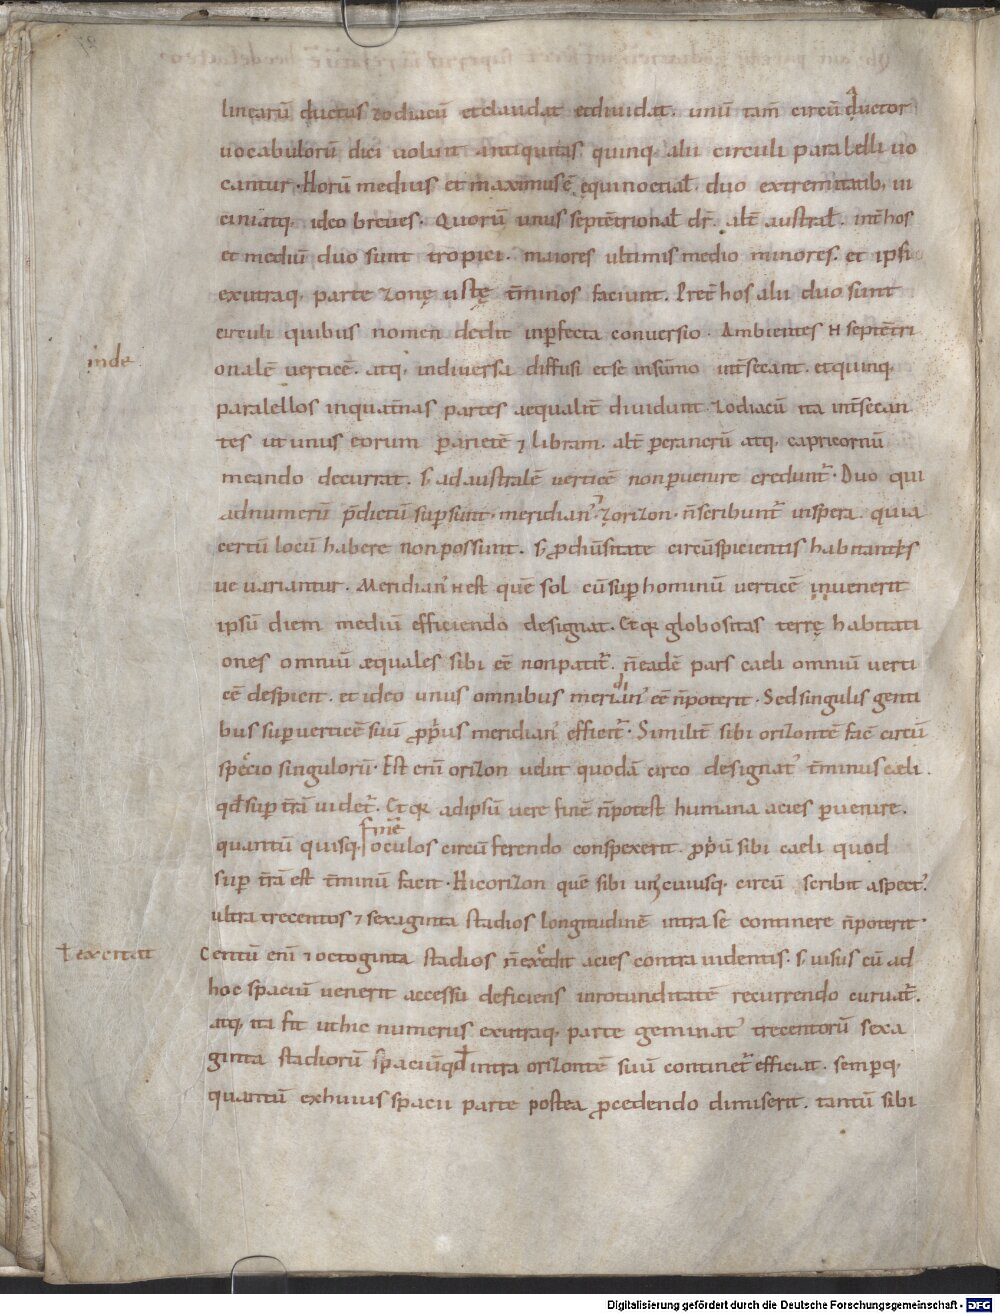 linearū ductus zodiacū et claudat et diuidat. unū tam̄ circū ductor
uocabulorū dici uoluit antiquitas quinq; alii circuli paralelli uo
cantur. Horū medius et maximus ē ęquinoctial̄. duo extremitatib; ui
cini atq; ideo breues. Quorū unus septētrional̄ dr̄. alt̄ austral̄. int̄ hos
et mediū duo sunt tropici. maiores ultimis medio minores. et ipsi
ex utraq; parte zonę ustę t̄minos faciunt. Pret̄ hos alii duo sunt
circuli quibus nomen dedit inperfecta conuersio. Ambientes n̄ septētri
inde
onalē uerticē. atq; in diuersa diffusi et se in sūmo int̄secant. et quinq;
paralellos in quat̄nas partes aequalit̄ diuidunt. zodiacū ita int̄secan
tes ut unus eorum p̄ arietē & libram. alt̄ p̄ cancrū atq; capricornū
meando decurrat. s; ad australē uerticē non p̄uenire credunt̄. Duo qui
ad numerū p̄dictū sup̄sunt. meridian' & orizon. n̄ scribunt̄ in spera. quia
certū locū habere non possunt. s; p̄ diūsitate circūspicientis habitantis
ue uariantur. Meridian' n̄ est quē sol cū sup̄ hominū uerticē inuenerit
ipsū diem mediū efficiendo designat. Et qr̄ globositas terrę habitati
ones omniū æquales sibi eē non patit̄. n̄ eadē pars caeli omniū uerti
cē despicit. et ideo unus omnibus meridian' eē n̄ poterit. Sed singulis genti
bus sup̄ uerticē suū p̄prius meridian' efficit̄. Similit̄ sibi orizontē fac̄ circū
spectio singulorū. Est enī orizon udut quodā circo designat' t̄minus caeli.
qd̄ sup̄ t̄rā uidet̄. Et qr̄ ad ipsū uere finē n̄ potest humana acies p̄uenire.
finē
quantū quisq; oculos circū ferendo conspexerit. p̄priū sibi caeli quod
sup̄ t̄rā est t̄minū facit. Hic orizon quē sibi uni'cuiusq; circū scribit aspect'
ultra trecentos & sexaginta stadios longitudinē intra se continere n̄ poterit.
ł excitat
Centū enī & octoginta stadios n̄ excedit acies contra uidentis. s; uisus cū ad
hoc spaciū uenerit accessu deficiens in rotunditatē recurrendo curuat̄.
atq; ita fit ut hic numerus ex utraq; parte geminat' trecentorū sexa
ginta stadiorū spaciū qd̄ intra orizontē suū continet̄ efficiat. semp̄q;
quantū ex huius spacii parte postea p̄cedendo dimiserit. tantū sibi
Digitalisierung gefördert durch die Deutsche Forschungsgemeinschaft - DFG